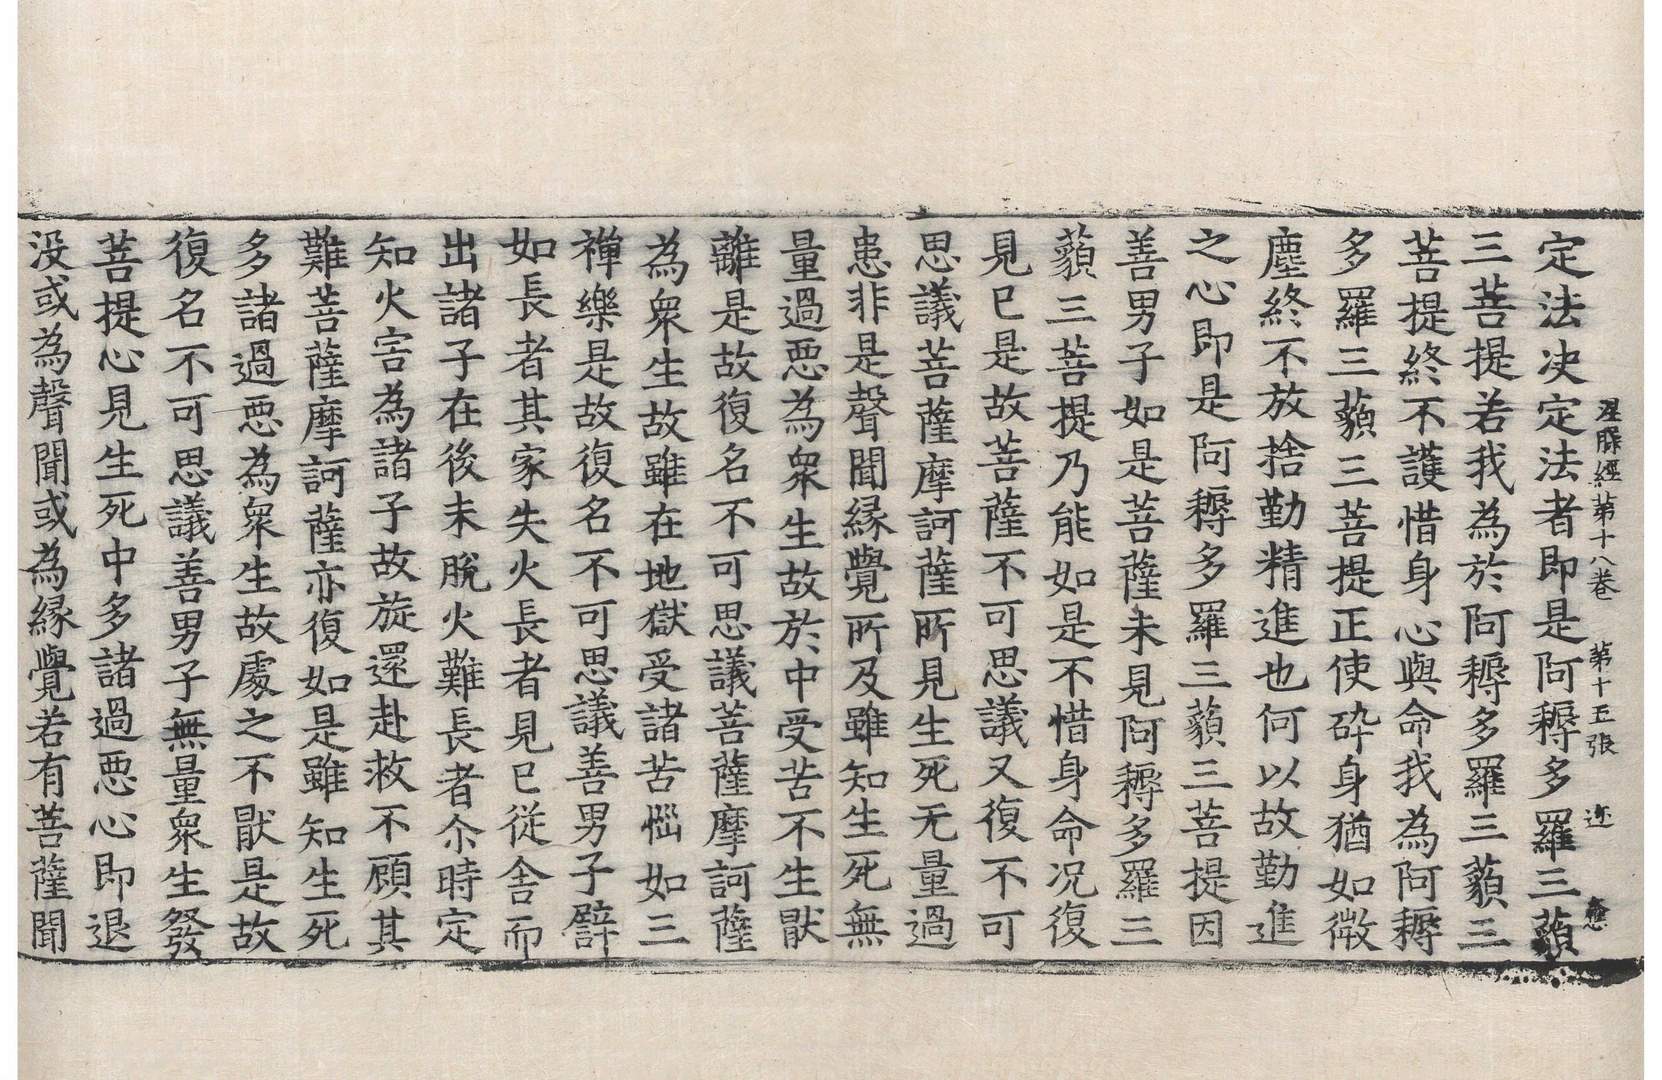 涅槃經苐十八卷 苐十五張 迩
定法决定法者即是阿耨多羅三藐
三菩提若我為於阿耨多羅三藐三
菩提終不護惜身心與命我為阿耨
多羅三藐三菩提正使碎身猶如微
塵終不放捨勤精進也何以故勤進
之心即是阿耨多羅三藐三菩提因
善男子如是菩薩未見阿耨多羅三
藐三菩提乃能如是不惜身命况復
見已是故菩薩不可思議又復不可
思議菩薩摩訶薩所見生死无量過
患非是聲聞縁覺所及雖知生死無
量過惡為衆生故於中受苦不生猒
離是故復名不可思議菩薩摩訶薩
為衆生故雖在地獄受諸苦惱如三
禪樂是故復名不可思議善男子譬
如長者其家失火長者見已從舍而
出諸子在後未脫火難長者尒時定
知火害為諸子故旋還赴救不顧其
難菩薩摩訶薩亦復如是雖知生死
多諸過惡為衆生故處之不猒是故
復名不可思議善男子無量衆生發
菩提心見生死中多諸過惡心即退
没或為聲聞或為縁覺若有菩薩聞